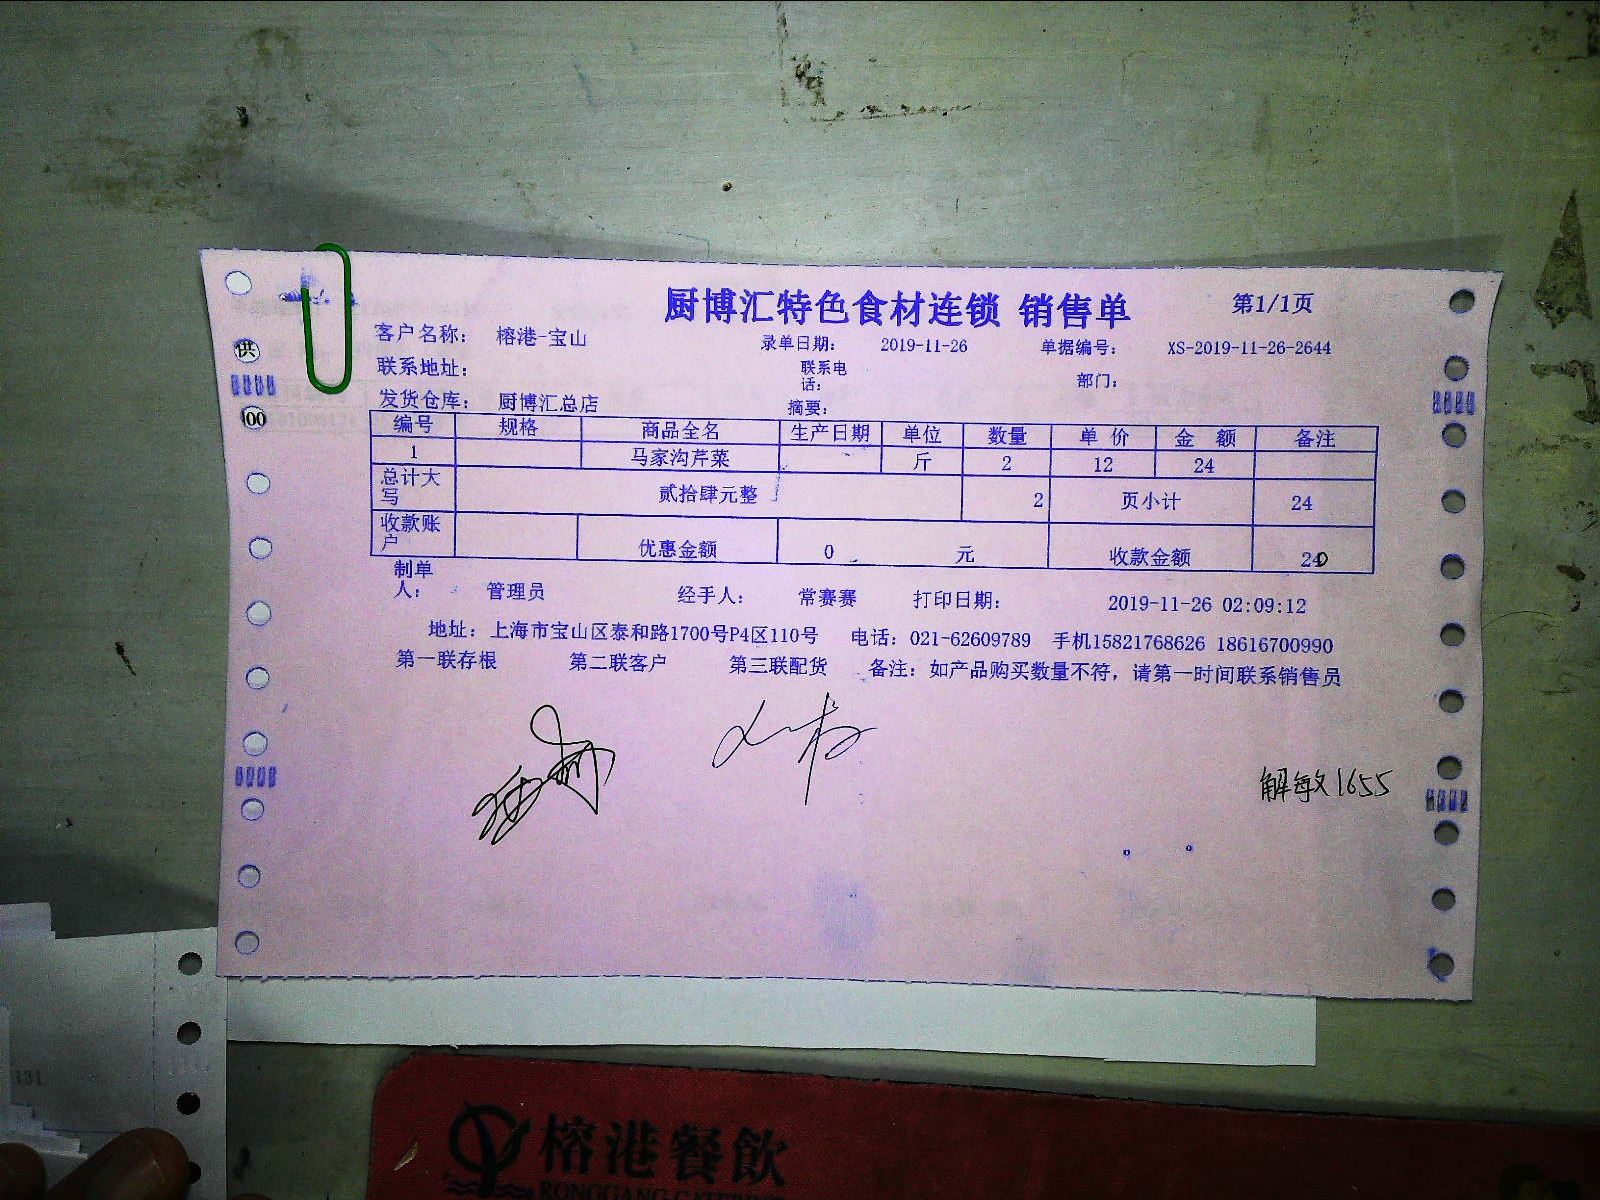 厨博汇特色食材连锁 销售单 第1/1页
客户名称： 榕港-宝山 录单日期： 2019-11-26 单据编号： XS-2019-11-26-2644
联系地址： 联系电话： 部门：
发货仓库： 厨博汇总店 摘要：
编号 规格 商品全名 生产日期 单位 数量 单 价 金 额 备注
1 马家沟芹菜 斤 2 12 24
总计大写 贰拾肆元整 2 页小计 24
收款账户 优惠金额 0 元 收款金额
制单人： 管理员 经手人： 常赛赛 打印日期： 2019-11-26 02:09:12
地址：上海市宝山区泰和路1700号P4区110号 电话：021-62609789 手机15821768626 18616700990
第一联存根 第二联客户 第三联配货 备注：如产品购买数量不符，请第一时间联系销售员
解敏1655
供
00
131
榕港餐飲
RONGGANG CATERING